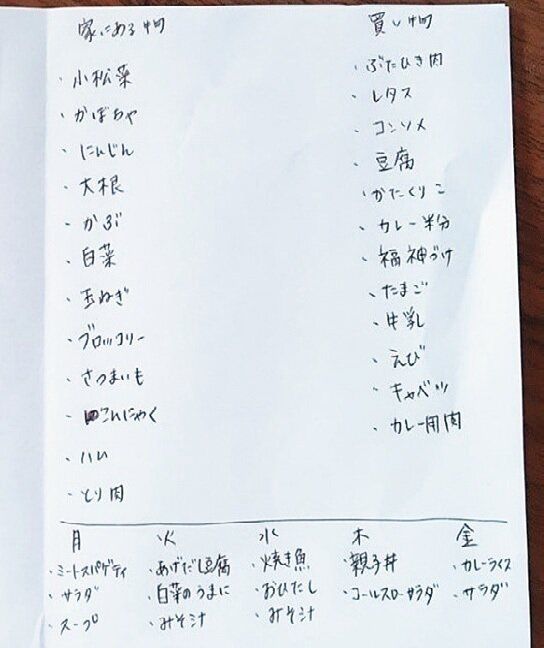 家にある物
・小松菜
・かぼちゃ
・にんじん
・大根
・かぶ
・白菜
・玉ねぎ
・ブロッコリー
・さつまいも
・こんにゃく
・ハム
・とり肉
買い物
・ぶたひき肉
・レタス
・コンソメ
・豆腐
・かたくりこ
・カレー粉
・福神づけ
・たまご
・牛乳
・えび
・キャベツ
・カレー用肉
月 火 水 木 金
・ミートスパゲティ ・あげだし豆腐 ・焼き魚 ・親子丼 ・カレーライス
・サラダ ・白菜のうまに ・おひたし ・コールスローサラダ ・サラダ
・スープ ・みそ汁 ・みそ汁